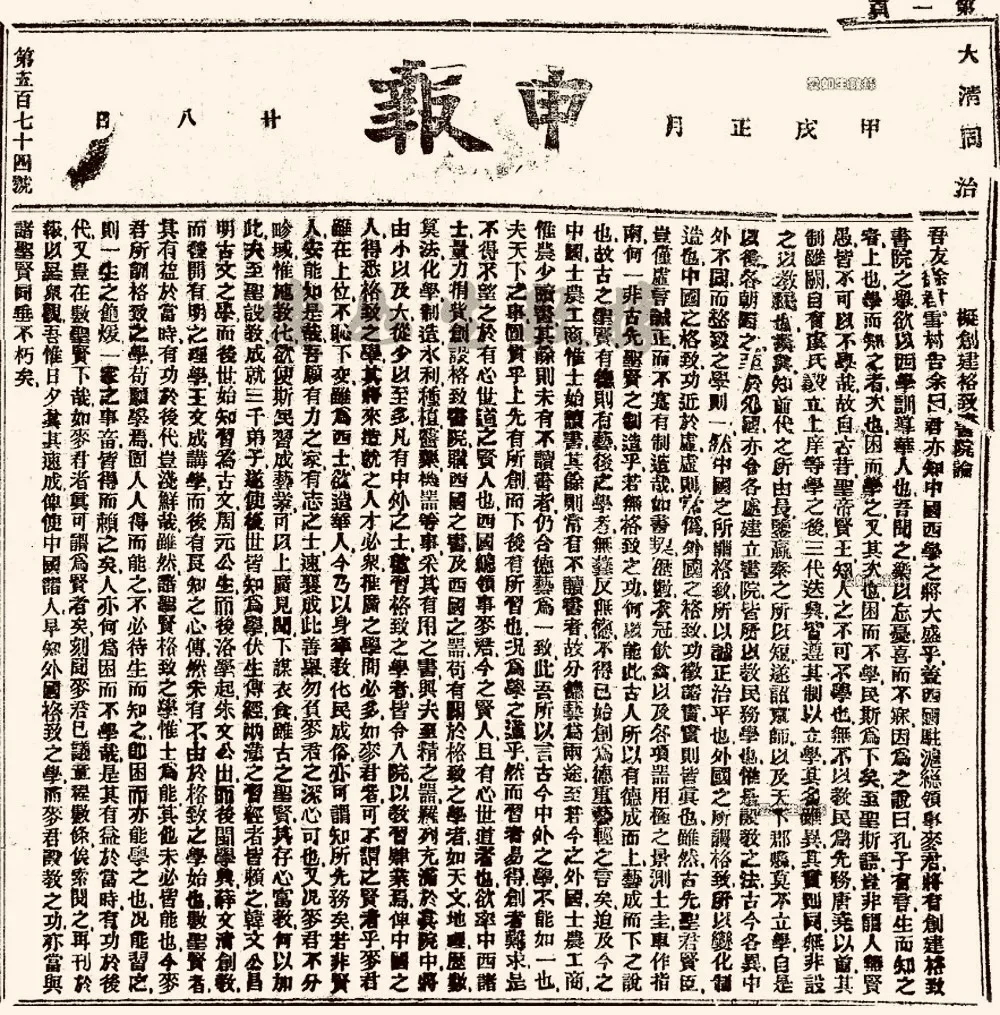 第一頁
大清同治
甲戌正月
申報
廿八日
第五百七十四號
擬創建格致書院論
吾友徐君雪村告余曰君亦知中國西學之將大盛乎蓋西國駐滬總領事麥君將有創建格致
書院之舉欲以西學訓導華人也吾聞之樂以忘憂喜而不寐因為之說曰孔子有言生而知之
者上也學而知之者次也困而學之又其次也困而不學民斯為下矣至聖斯語豈非謂人無賢
愚皆不可以不學哉故自古昔聖帝賢王知人之不可不學也無不以教民為先務唐堯以前其
制雖闕自有虞氏設立上庠等學之後三代迭興皆遵其制以立學其名雖異其實則同無非設
之以教民也漢興知前代之所由長鑒嬴秦之所以短遂詔京師以及天下郡縣莫不立學自是
以後各朝因之至於外國亦令各處建立書院皆所以教民務學也惟是設教之法古今各異中
外不同而格致之學則一然中國之所謂格致所以誠正治平也外國之所謂格致所以變化制
造也中國之格致功近於虛虛則常偽外國之格致功徵諸實實則皆真也雖然古先聖君賢臣
豈僅虛言誠正而不寔有制造哉如書契歷數衣冠飲食以及各項器用極之景測土圭車作指
南何一非古先聖賢之制造乎若無格致之功何以能此古人所以有德成而上藝成而下之說
也故古之聖賢有德則有藝後之學者無藝反無德不得已始創為德重藝輕之言矣迨及今之
中國士農工商惟士始讀書其餘則常有不讀書者故分德藝為兩途至若今之外國士農工商
惟農少讀書其餘則未有不讀書者仍合德藝為一致此吾所以言古今中外之學不能如一也
夫天下之事固貴乎上先有所創而下後有所習也況為學之道乎然而習者易得創者難求是
不得不望之於有心世道之賢人也西國總領事麥君今之賢人且有心世道者也欲率中西諸
士量力捐貲創設格致書院購西國之書及西國之器苟有關於格致之學者如天文地理歷數
算法化學制造水利種植醫藥機器等事采其有用之書與夫至精之器羅列充滿於其院中將
由小以及大從少以至多凡有中外之士願習格致之學者皆令入院以教習肄業焉俾中國之
人得悉格致之學其將來造就之人才必衆推廣之學問必多如麥君者可不謂之賢者乎麥君
雖在上位不恥下交雖為西士欲造華人今乃以身率教化民成俗亦可謂知所先務矣若非賢
人安能如是哉吾願有力之家有志之士速襄成此善舉勿負麥君之深心可也又況麥君不分
畛域惟施教化欲使斯民習成藝業可以上廣見聞下謀衣食雖古之聖賢其存心富教何以加
此夫至聖設教成就三千弟子遂使後世皆知為學伏生傳經炳漢之習經者皆賴之韓文公昌
明古文之學而後世始知習為古文周元公生而後洛學起朱文公出而後閩學興薛文清創教
而後開有明之理學王文成講學而後有良知之心傳然未有不由於格致之學始也數聖賢者
其有益於當時有功於後代豈淺鮮哉雖然諸聖賢格致之學惟士為能其他未必皆能也今麥
君所訓格致之學苟願學焉固人人得而能之不必待生而知之即困而亦能學之也况能習之
則一生之飽煖一家之事畜皆得而賴之矣人亦何為困而不學哉是其有益於當時有功於後
代又豈在數聖賢下哉如麥君者真可謂為賢者矣刻聞麥君已議章程數條俟索閱之再刊於
報以呈衆觀吾惟日夕冀其速成俾使中國諸人早知外國格致之學而麥君設教之功亦當與
諸聖賢同垂不朽矣